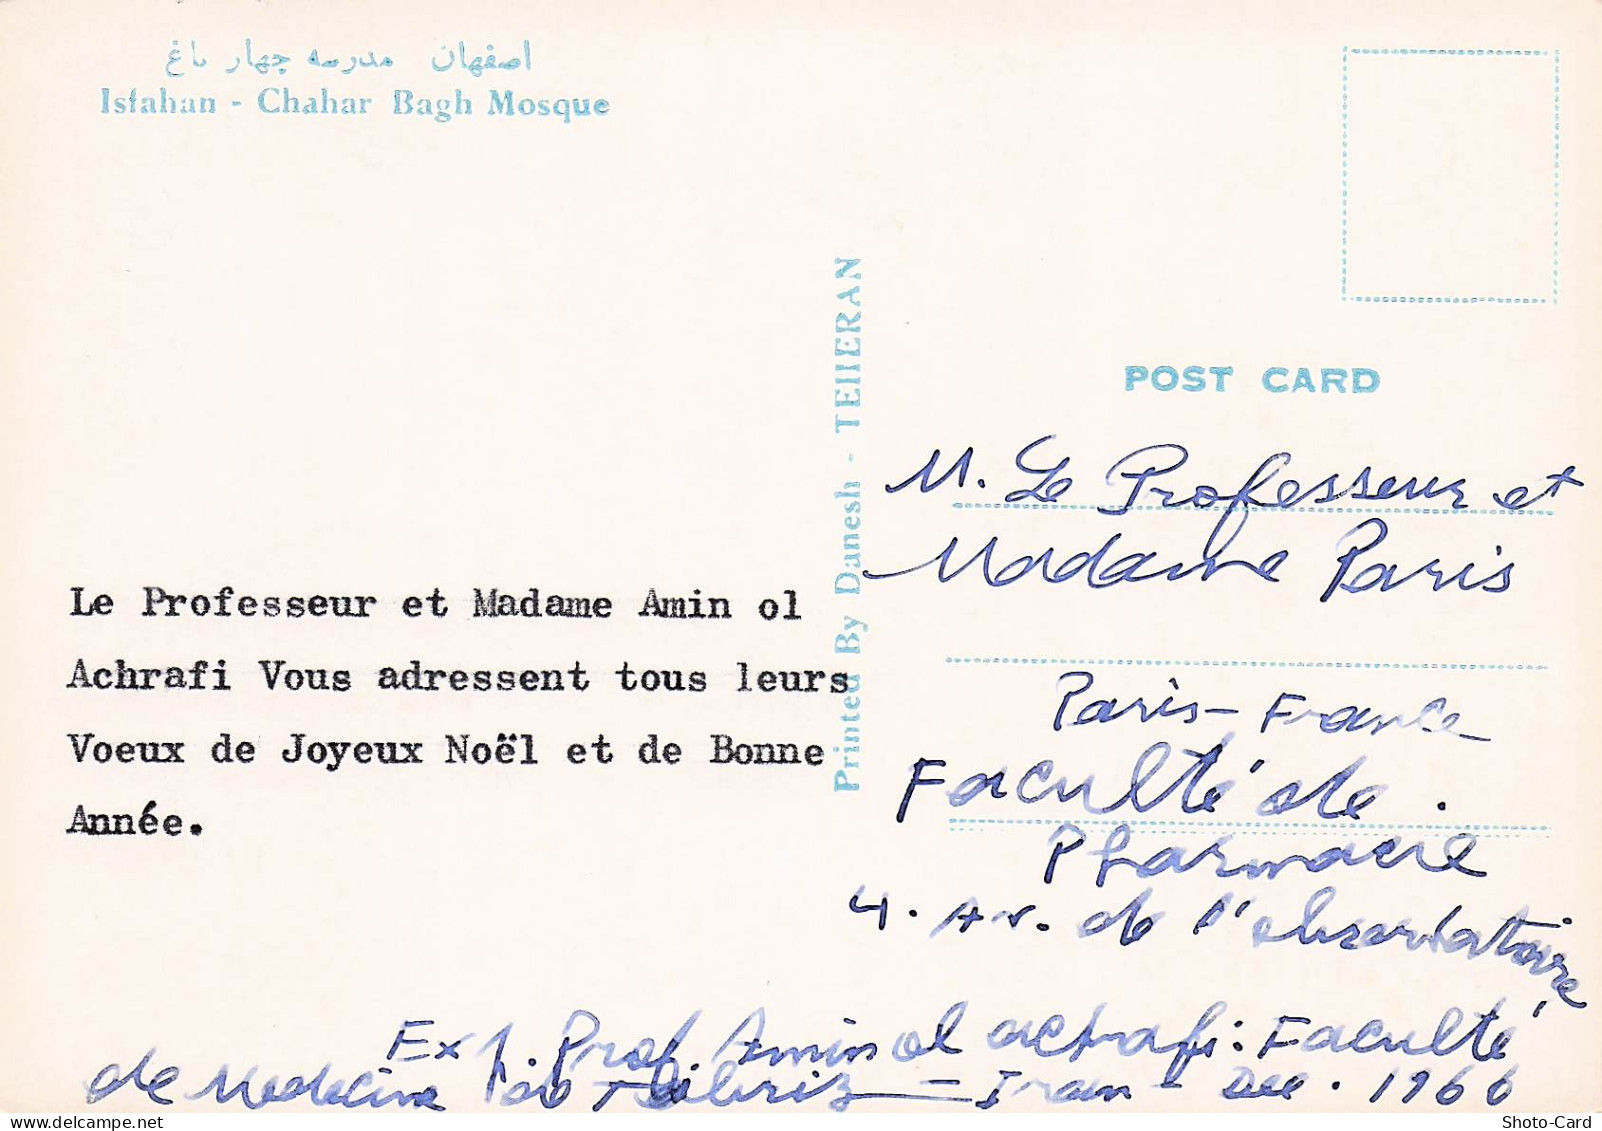 اصفهان مدرسه چهار باغ
Isfahan - Chahar Bagh Mosque
POST CARD
Printed By Danesh - TEHERAN
M. Le Professeur et
Madame Paris
Paris - France
Faculté de.
Pharmacie
4. Av. de l'observatoire
Le Professeur et Madame Amin ol
Achrafi Vous adressent tous leurs
Voeux de Joyeux Noël et de Bonne
Année.
Prof. Amin ol achrafi: Faculté
de Medecine de Tabriz - Iran - Dec. 1966
delcampe.net
Shoto-Card